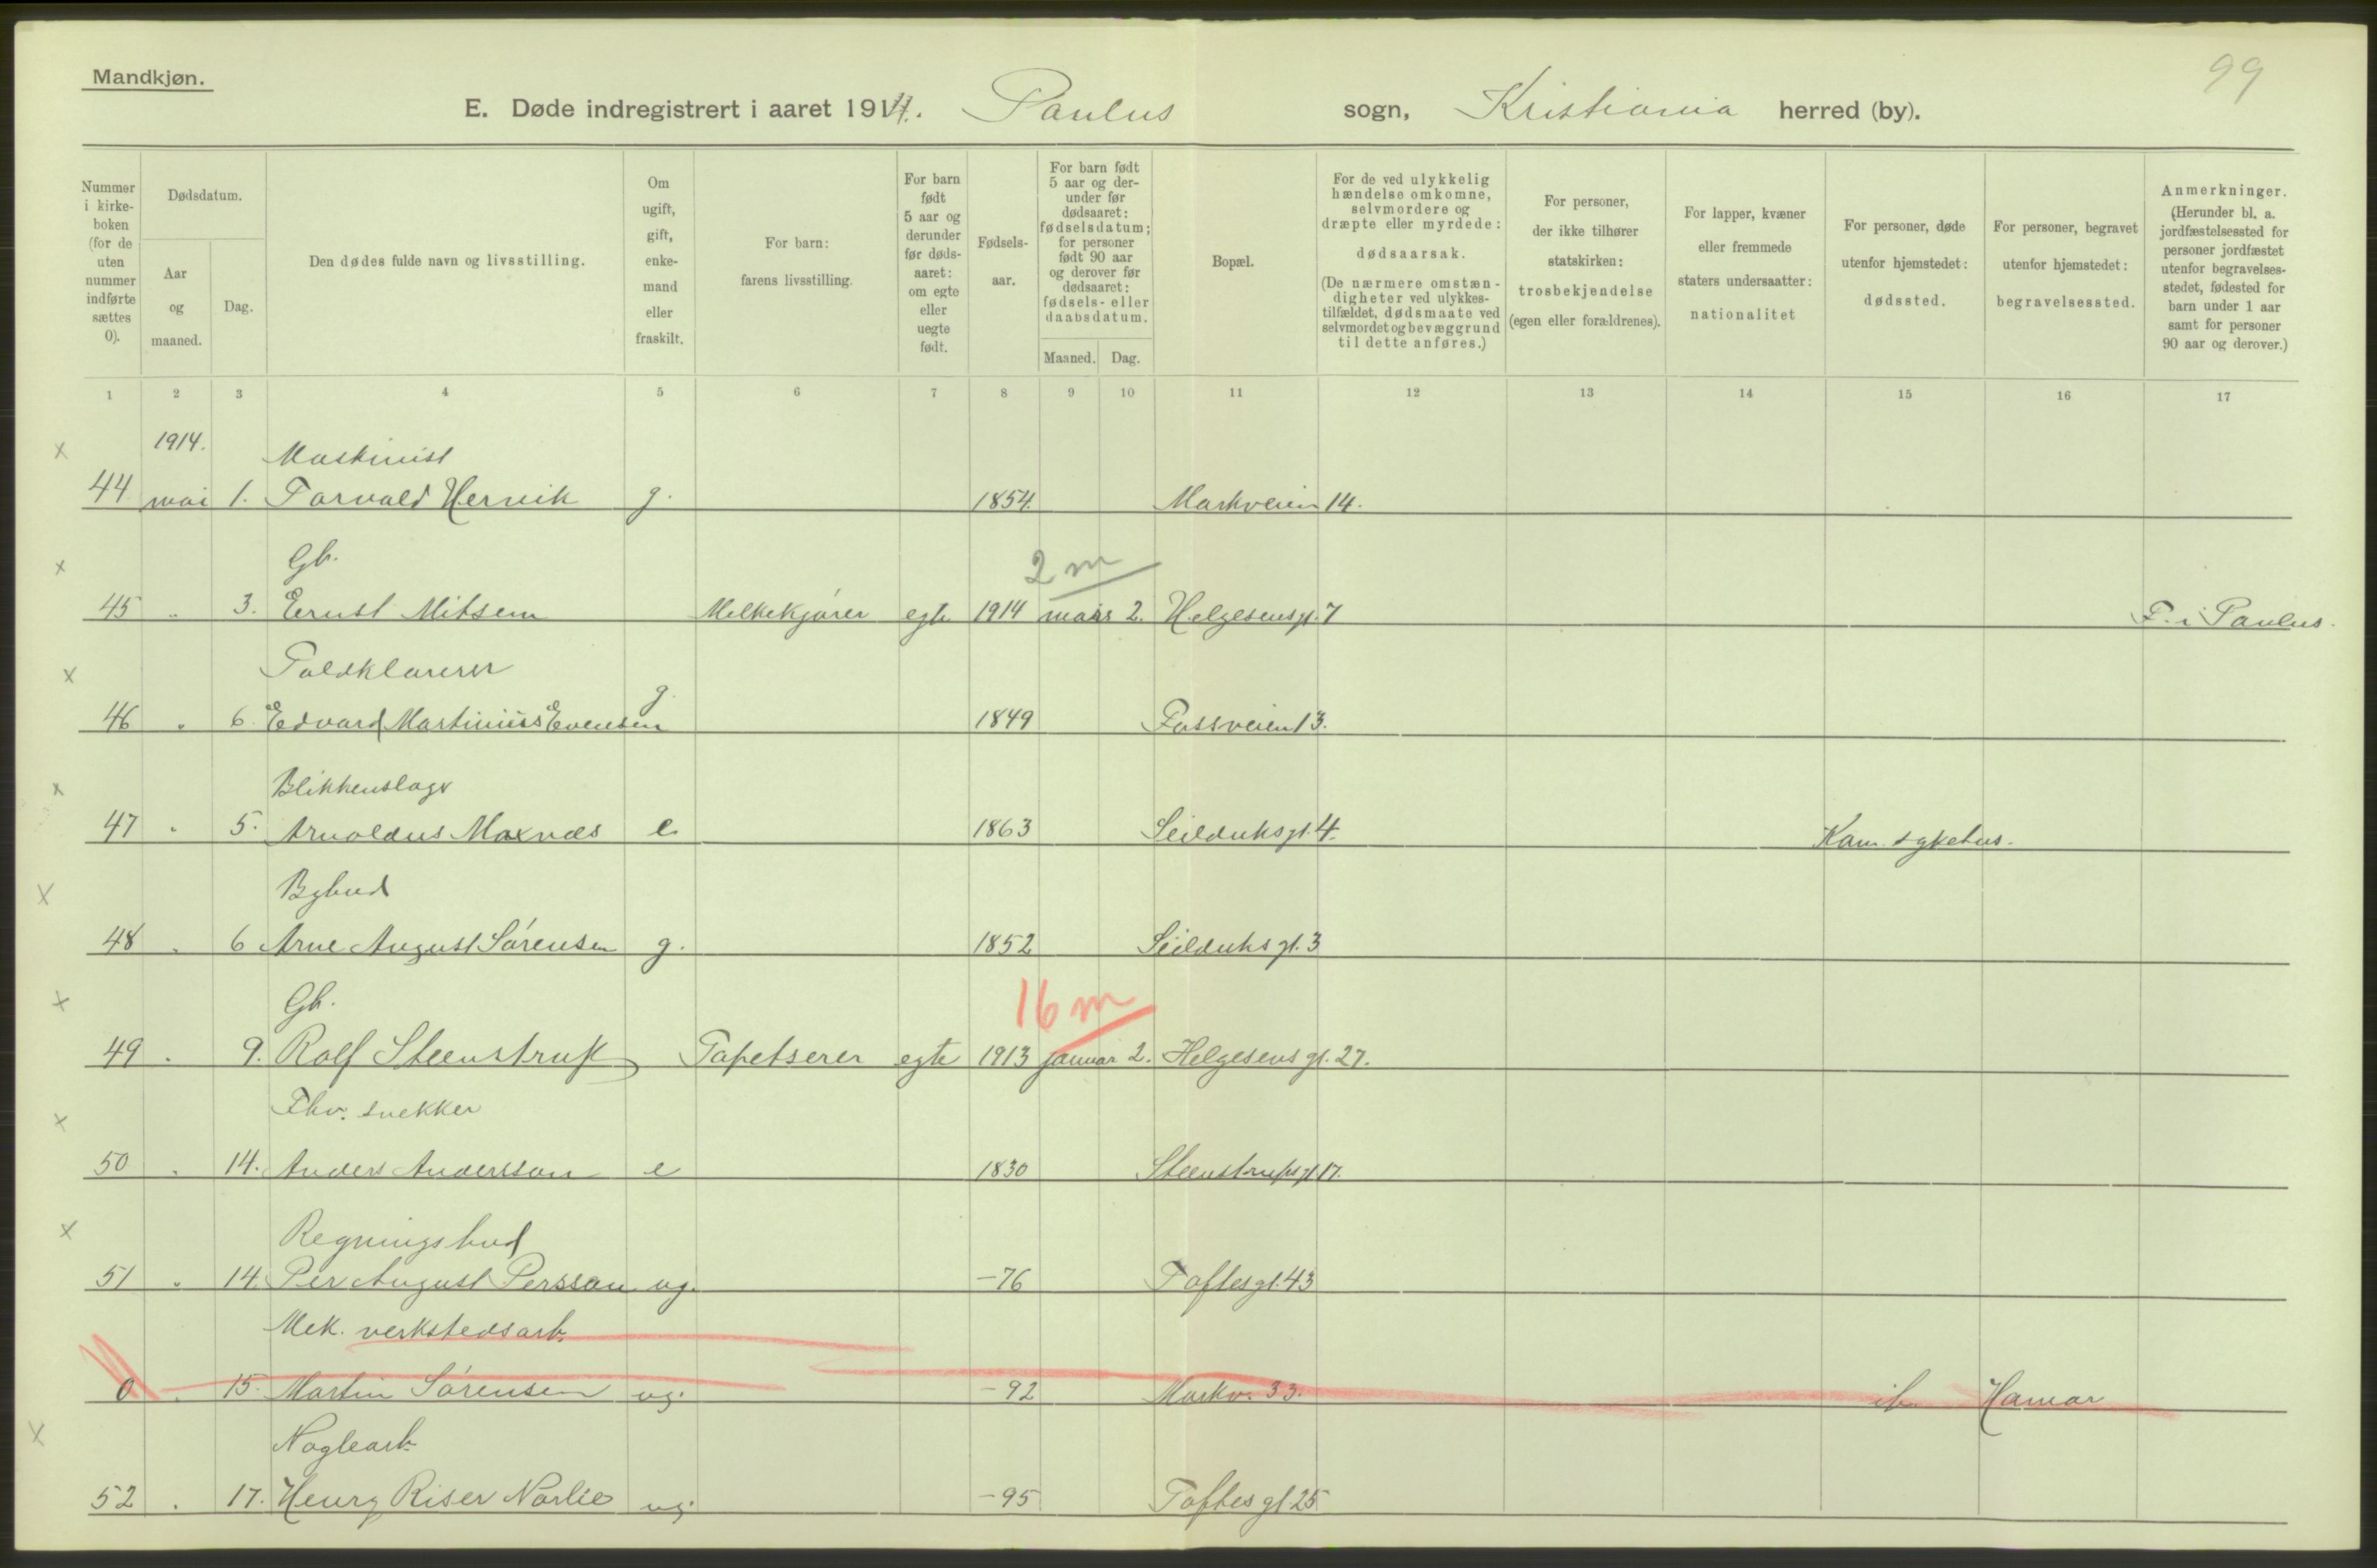 Mandkjøn.
99
E. Døde indregistrert i aaret 1914. Paulus sogn, Kristiania herred (by).
Nummer i kirkeboken (for de uten nummer indførte sættes 0).
Dødsdatum.
Aar og maaned.
Dag.
Den dødes fulde navn og livsstilling.
Om ugift, gift, enkemand eller fraskilt.
For barn: farens livsstilling.
For barn født 5 aar og derunder før dødsaaret: om egte eller uegte født.
Fødselsaar.
For barn født 5 aar og derunder før dødsaaret: fødselsdatum; for personer født 90 aar og derover før dødsaaret: fødsels- eller daabsdatum.
Maaned. Dag.
Bopæl.
For de ved ulykkelig hændelse omkomne, selvmordere og dræpte eller myrdede: dødsaarsak. (De nærmere omstændigheter ved ulykkestilfældet, dødsmaate ved selvmordet og bevæggrund til dette anføres.)
For personer, der ikke tilhører statskirken: trosbekjendelse (egen eller forældrenes).
For lapper, kvæner eller fremmede staters undersaatter: nationalitet
For personer, døde utenfor hjemstedet: dødssted.
For personer, begravet utenfor hjemstedet: begravelsessted.
Anmerkninger. (Herunder bl. a. jordfæstelsessted for personer jordfæstet utenfor begravelsesstedet, fødested for barn under 1 aar samt for personer 90 aar og derover.)
1 2 3 4 5 6 7 8 9 10 11 12 13 14 15 16 17
x 1914. Maskinist
44 mai 1. Torvald Hervik g. 1854. Markveien 14.
x Gb. 2 m
45 " 3. Ernst Mitsem Melkekjører egte 1914 mars 2. Helgesensgt. 7 F. i Paulus.
x Toldklarerer
46 " 6. Edvard Martinius Evensen g. 1849 Fossveien 13.
x Blikkenslager
47 " 5. Arnoldus Moxnæs e 1863 Seilduksgt. 4. Kom. sykehus.
x Bybud
48 " 6 Arne August Sørensen g. 1852 Seilduksgt. 3
x Gb. 16 m
49 " 9. Rolf Steenstrup Tapetserer egte 1913 januar 2. Helgesens gt. 27.
x Fhv. snekker
50 " 14. Anders Andersson e 1830 Steenstrupsgt. 17.
x Regningsbud
51 " 14. Per August Persson ug. -76 Toftesgt. 43
Mek. verkstedsarb.
0 " 15. Martin Sørensen ug. -92 Markv. 33. ib. Hamar
x Noglearb.
52 " 17. Henry Riser Norlie ug. -95 Toftes gt. 25